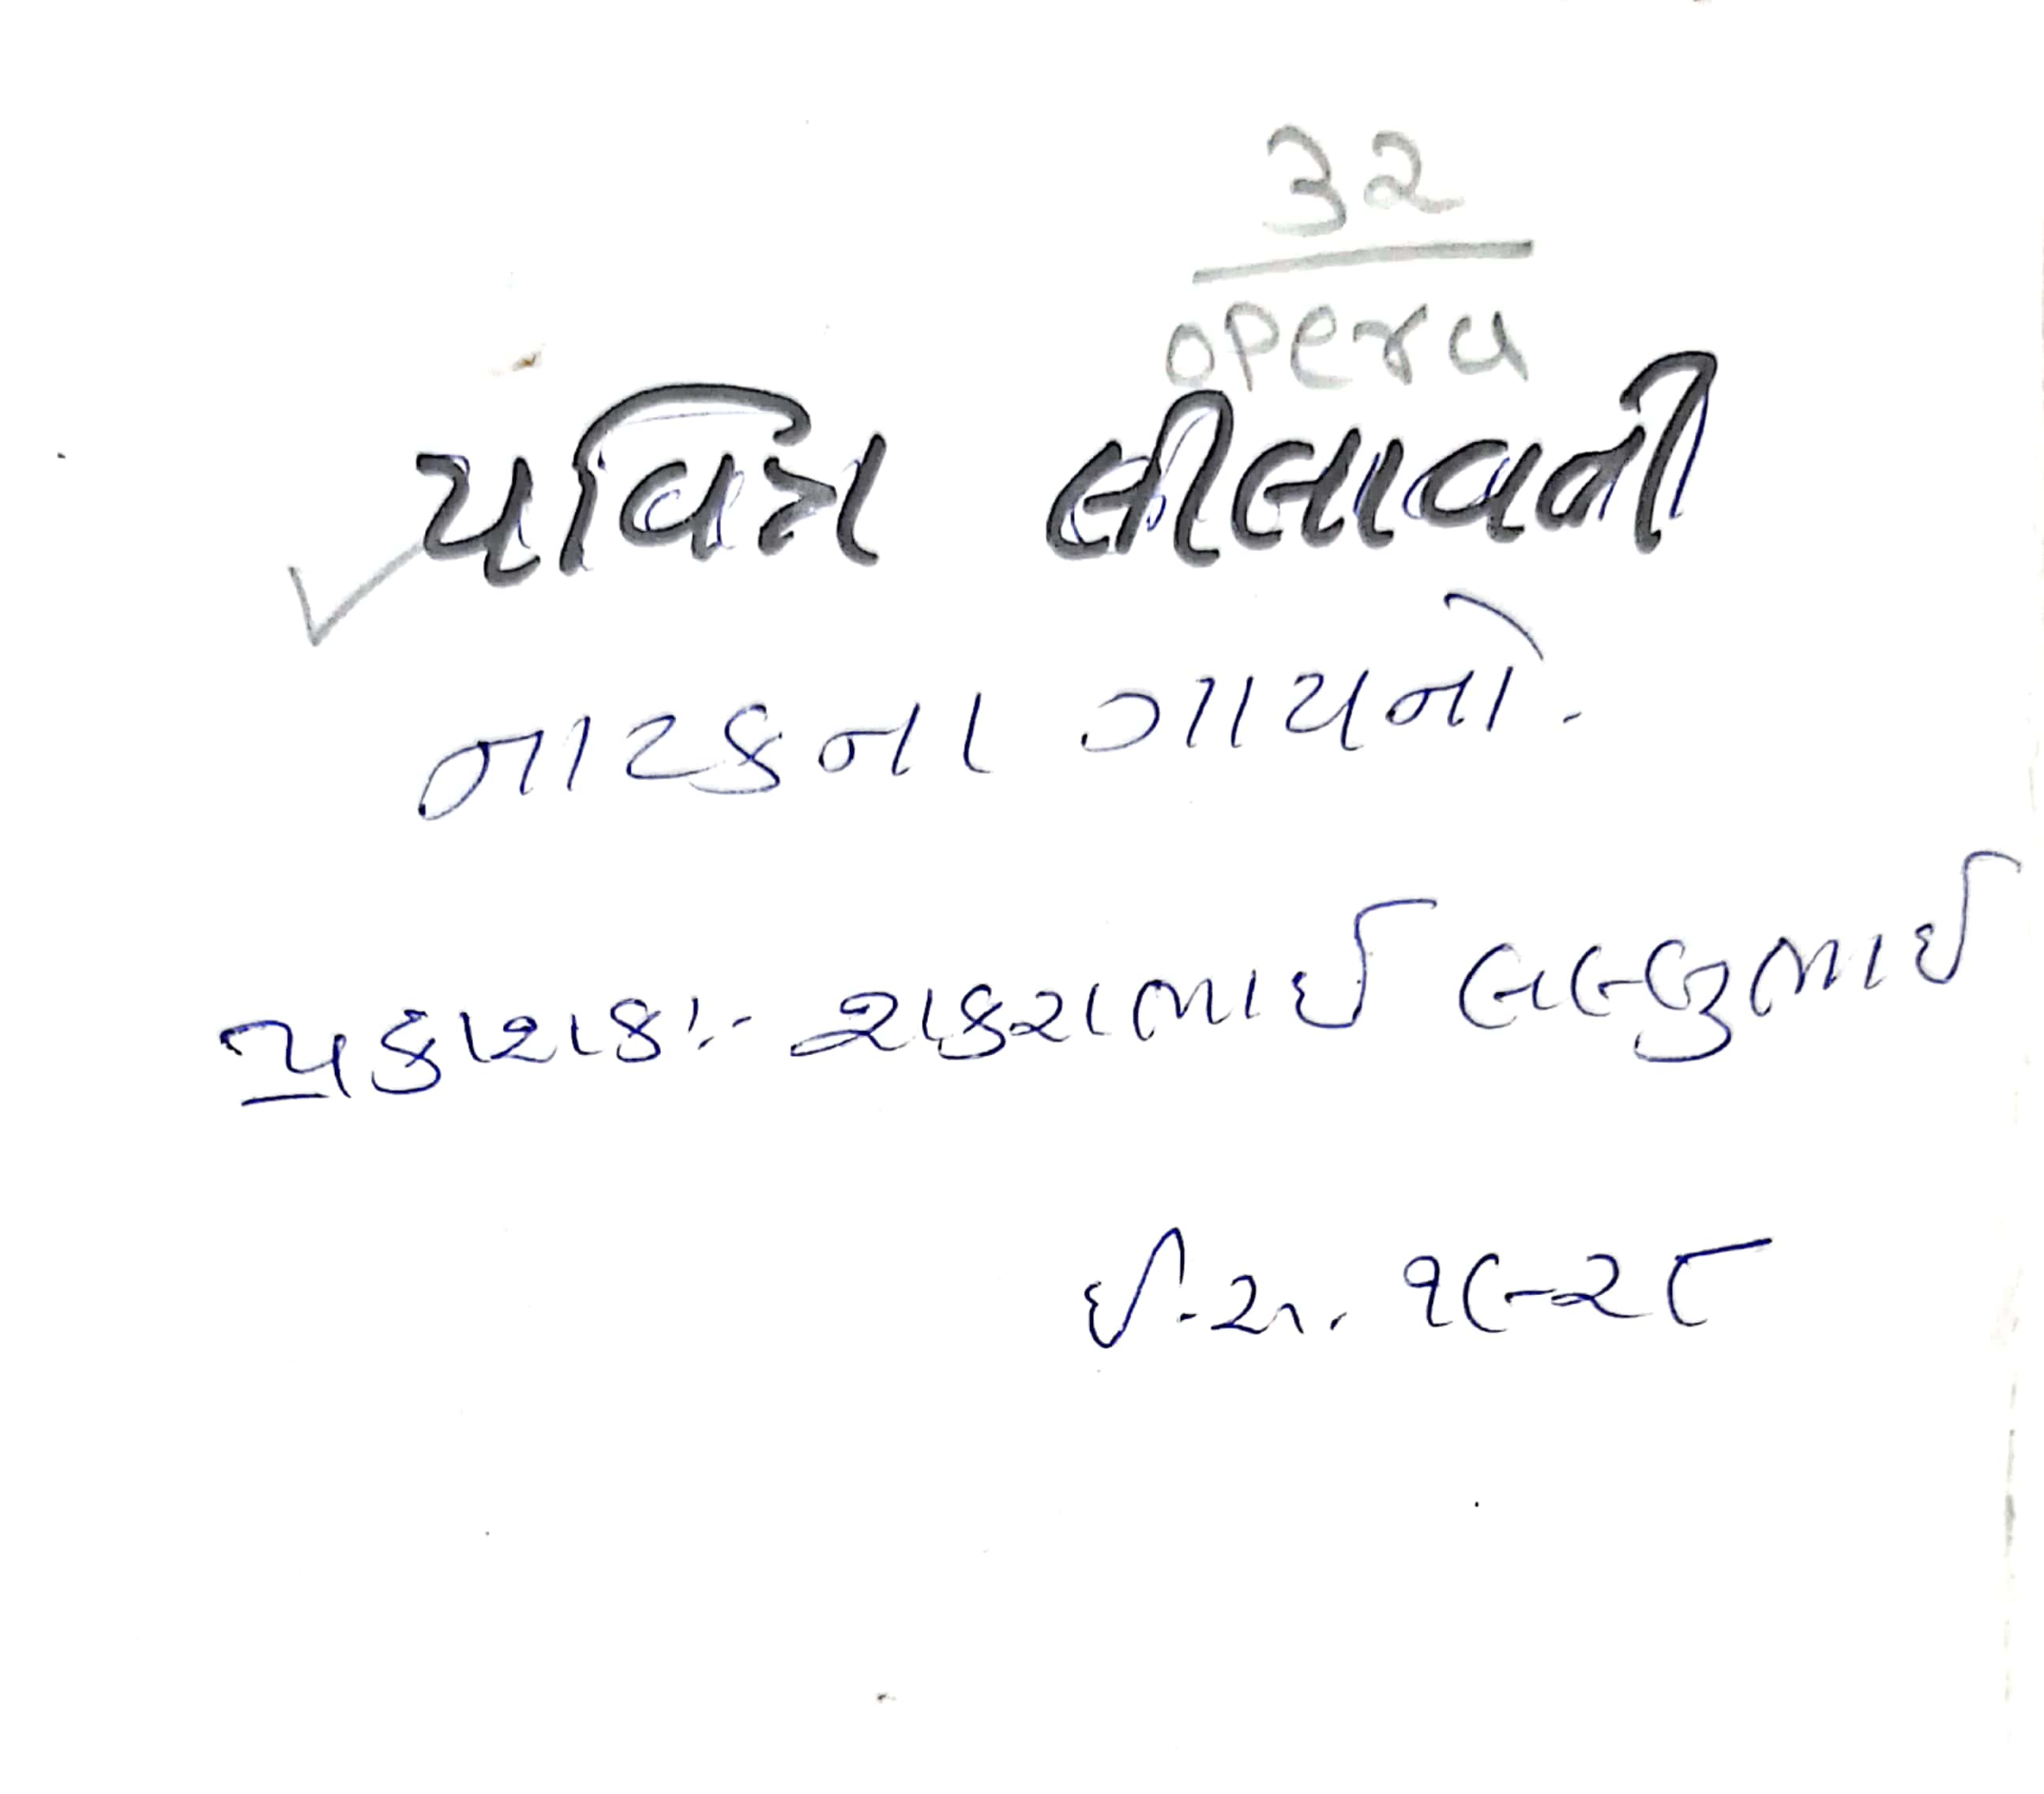 ૩૨
opera
પવિત્ર લીલાવતી
નાટકના ગાયનો.
પ્રકાશક:- શકરાભાઈ લલ્લુભાઈ
ઈ.સ. ૧૯૨૮